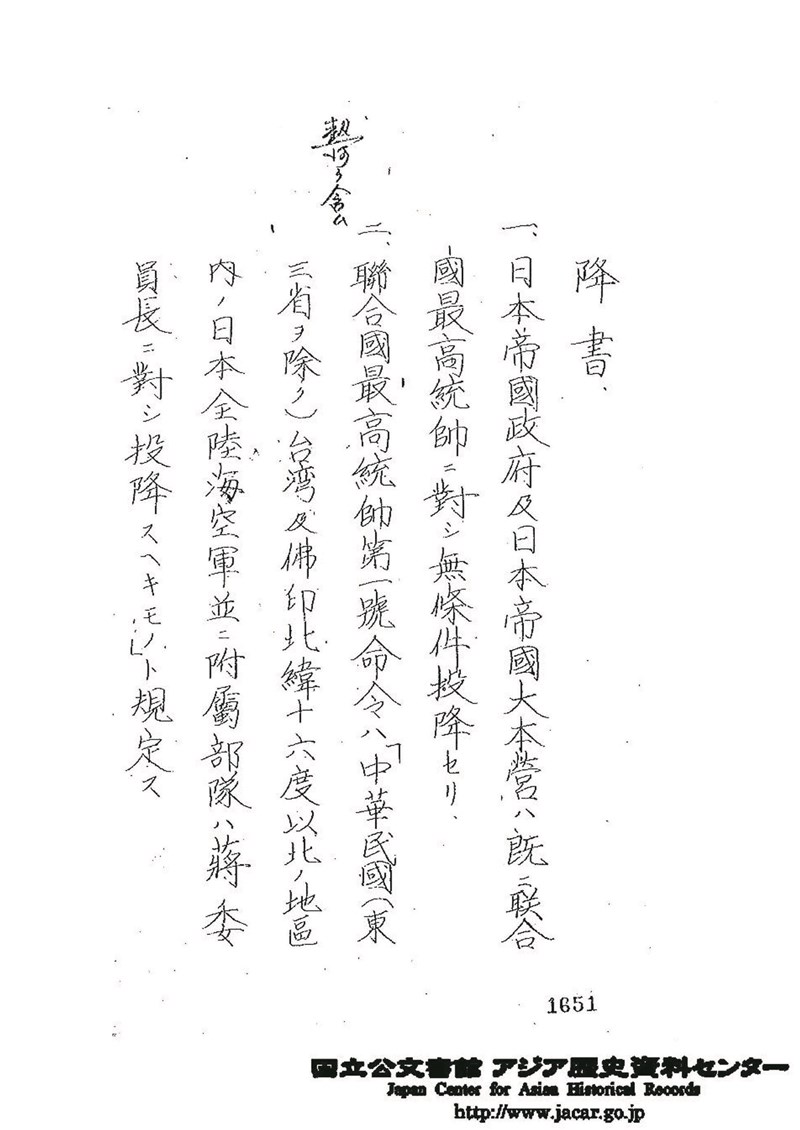 降書、
一、日本帝國政府及日本帝國大本営ハ既ニ联合
國最高統帥ニ對シ無條件投降セリ、
熱河ヲ含ム
二、聯合國最高統帥第一號命令ハ「中華民國(東
三省ヲ除ク)台湾及佛印北緯十六度以北ノ地區
内ノ日本全陸海空軍並ニ附屬部隊ハ蔣委
員長ニ對シ投降スヘキモノ」ト規定ス
1651
国立公文書館 アジア歴史資料センター
Japan Center for Asian Historical Records
http://www.jacar.go.jp